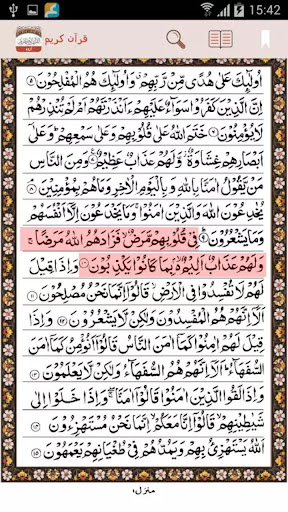 15:42
قرآن کریم
اُولٰٓئِكَ عَلٰى هُدًى مِّنْ رَّبِّهِمْ وَاُولٰٓئِكَ هُمُ الْمُفْلِحُوْنَ ۝۵
اِنَّ الَّذِيْنَ كَفَرُوْا سَوَآءٌ عَلَيْهِمْ ءَاَنْذَرْتَهُمْ اَمْ لَمْ تُنْذِرْهُمْ
لَا يُؤْمِنُوْنَ ۝۶ خَتَمَ اللّٰهُ عَلٰى قُلُوْبِهِمْ وَعَلٰى سَمْعِهِمْ وَعَلٰٓى
اَبْصَارِهِمْ غِشَاوَةٌ وَّلَهُمْ عَذَابٌ عَظِيْمٌ ۝۷ وَمِنَ النَّاسِ
مَنْ يَّقُوْلُ اٰمَنَّا بِاللّٰهِ وَبِالْيَوْمِ الْاٰخِرِ وَمَا هُمْ بِمُؤْمِنِيْنَ ۝۸
يُخٰدِعُوْنَ اللّٰهَ وَالَّذِيْنَ اٰمَنُوْا وَمَا يَخْدَعُوْنَ اِلَّآ اَنْفُسَهُمْ
وَمَا يَشْعُرُوْنَ ۝۹ فِيْ قُلُوْبِهِمْ مَّرَضٌ فَزَادَهُمُ اللّٰهُ مَرَضًا
وَلَهُمْ عَذَابٌ اَلِيْمٌ بِمَا كَانُوْا يَكْذِبُوْنَ ۝۱۰ وَاِذَا قِيْلَ
لَهُمْ لَا تُفْسِدُوْا فِي الْاَرْضِ قَالُوْٓا اِنَّمَا نَحْنُ مُصْلِحُوْنَ ۝۱۱
اَلَآ اِنَّهُمْ هُمُ الْمُفْسِدُوْنَ وَلٰكِنْ لَّا يَشْعُرُوْنَ ۝۱۲ وَاِذَا
قِيْلَ لَهُمْ اٰمِنُوْا كَمَآ اٰمَنَ النَّاسُ قَالُوْٓا اَنُؤْمِنُ كَمَآ اٰمَنَ
السُّفَهَآءُ اَلَآ اِنَّهُمْ هُمُ السُّفَهَآءُ وَلٰكِنْ لَّا يَعْلَمُوْنَ ۝۱۳
وَاِذَا لَقُوا الَّذِيْنَ اٰمَنُوْا قَالُوْٓا اٰمَنَّا وَاِذَا خَلَوْا اِلٰى
شَيٰطِيْنِهِمْ قَالُوْٓا اِنَّا مَعَكُمْ اِنَّمَا نَحْنُ مُسْتَهْزِءُوْنَ ۝۱۴
اَللّٰهُ يَسْتَهْزِئُ بِهِمْ وَيَمُدُّهُمْ فِيْ طُغْيَانِهِمْ يَعْمَهُوْنَ ۝۱۵
منزل۱